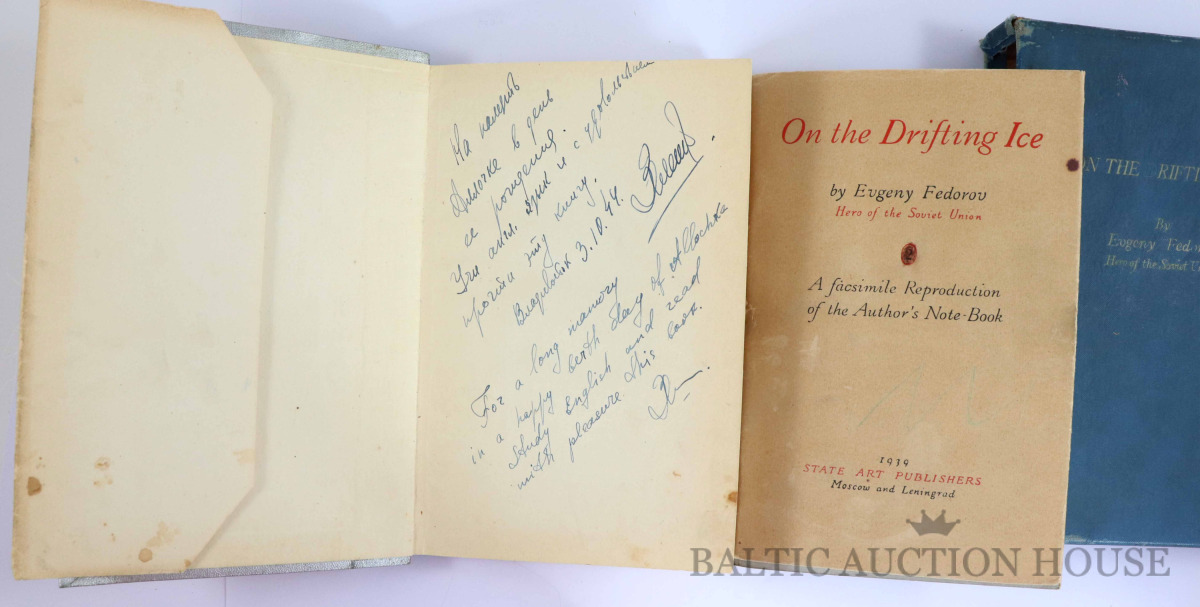 На память
Аллочке в день
ее рождения.
Учи англ. язык и с удовольствием
прочти эту книгу.
Владивосток 3.10.44.
For a long mamory
in a happy berth day of Allochka
study English and read
with pleasure this book.
On the Drifting Ice
by Evgeny Fedorov
Hero of the Soviet Union
A facsimile Reproduction
of the Author's Note-Book
1939
STATE ART PUBLISHERS
Moscow and Leningrad
ON THE DRIFTI
By
Evgeny Fed
Hero of the Soviet U
BALTIC AUCTION HOUSE